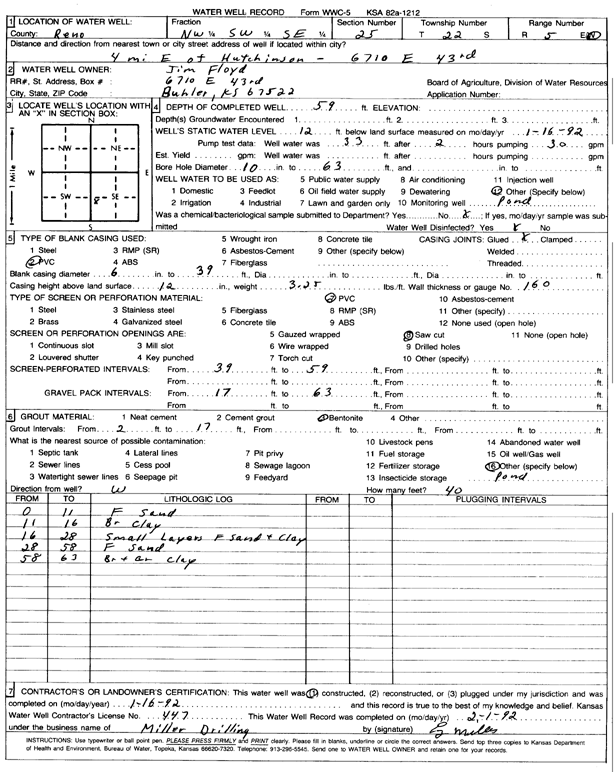 WATER WELL RECORD Form WWC-5 KSA 82a-1212
1 LOCATION OF WATER WELL: Fraction Section Number Township Number Range Number
County: Reno NW ¼ SW ¼ SE ¼ 25 T 22 S R 5 E/W
Distance and direction from nearest town or city street address of well if located within city?
4 mi E of Hutchinson - 6710 E 43rd
2 WATER WELL OWNER: Jim Floyd
RR#, St. Address, Box # : 6710 E 43rd Board of Agriculture, Division of Water Resources
City, State, ZIP Code : Buhler, KS 67522 Application Number:
3 LOCATE WELL'S LOCATION WITH AN "X" IN SECTION BOX:
N
NW NE
W E
SW X SE
S
1 Mile
4 DEPTH OF COMPLETED WELL 59 ft. ELEVATION:
Depth(s) Groundwater Encountered 1. ft. 2. ft. 3. ft.
WELL'S STATIC WATER LEVEL 12 ft. below land surface measured on mo/day/yr 1-16-92
Pump test data: Well water was 33 ft. after 2 hours pumping 30 gpm
Est. Yield gpm: Well water was ft. after hours pumping gpm
Bore Hole Diameter 10 in. to 63 ft., and in. to ft.
WELL WATER TO BE USED AS: 5 Public water supply 8 Air conditioning 11 Injection well
1 Domestic 3 Feedlot 6 Oil field water supply 9 Dewatering 12 Other (Specify below)
2 Irrigation 4 Industrial 7 Lawn and garden only 10 Monitoring well Pond
Was a chemical/bacteriological sample submitted to Department? Yes No X; If yes, mo/day/yr sample was submitted
Water Well Disinfected? Yes X No
5 TYPE OF BLANK CASING USED: 5 Wrought iron 8 Concrete tile CASING JOINTS: Glued X Clamped
1 Steel 3 RMP (SR) 6 Asbestos-Cement 9 Other (specify below) Welded
2 PVC 4 ABS 7 Fiberglass Threaded
Blank casing diameter 6 in. to 39 ft., Dia in. to ft., Dia in. to ft.
Casing height above land surface 12 in., weight 3.25 lbs./ft. Wall thickness or gauge No. 160
TYPE OF SCREEN OR PERFORATION MATERIAL: 7 PVC 10 Asbestos-cement
1 Steel 3 Stainless steel 5 Fiberglass 8 RMP (SR) 11 Other (specify)
2 Brass 4 Galvanized steel 6 Concrete tile 9 ABS 12 None used (open hole)
SCREEN OR PERFORATION OPENINGS ARE: 5 Gauzed wrapped 8 Saw cut 11 None (open hole)
1 Continuous slot 3 Mill slot 6 Wire wrapped 9 Drilled holes
2 Louvered shutter 4 Key punched 7 Torch cut 10 Other (specify)
SCREEN-PERFORATED INTERVALS: From 39 ft. to 59 ft., From ft. to ft.
From ft. to ft., From ft. to ft.
GRAVEL PACK INTERVALS: From 17 ft. to 63 ft., From ft. to ft.
From ft. to ft., From ft. to ft.
6 GROUT MATERIAL: 1 Neat cement 2 Cement grout 3 Bentonite 4 Other
Grout Intervals: From 2 ft. to 17 ft., From ft. to ft., From ft. to ft.
What is the nearest source of possible contamination: 10 Livestock pens 14 Abandoned water well
1 Septic tank 4 Lateral lines 7 Pit privy 11 Fuel storage 15 Oil well/Gas well
2 Sewer lines 5 Cess pool 8 Sewage lagoon 12 Fertilizer storage 16 Other (specify below)
3 Watertight sewer lines 6 Seepage pit 9 Feedyard 13 Insecticide storage Pond
Direction from well? W How many feet? 40
FROM TO LITHOLOGIC LOG FROM TO PLUGGING INTERVALS
0 11 F Sand
11 16 Br Clay
16 28 Small Layers F Sand + Clay
28 58 F Sand
58 63 Br + Gr Clay
7 CONTRACTOR'S OR LANDOWNER'S CERTIFICATION: This water well was (1) constructed, (2) reconstructed, or (3) plugged under my jurisdiction and was
completed on (mo/day/year) 1-16-92 and this record is true to the best of my knowledge and belief. Kansas
Water Well Contractor's License No. 447 This Water Well Record was completed on (mo/day/yr) 2-1-92
under the business name of Miller Drilling by (signature)
INSTRUCTIONS: Use typewriter or ball point pen. PLEASE PRESS FIRMLY and PRINT clearly. Please fill in blanks, underline or circle the correct answers. Send top three copies to Kansas Department
of Health and Environment, Bureau of Water, Topeka, Kansas 66620-7320. Telephone: 913-296-5545. Send one to WATER WELL OWNER and retain one for your records.